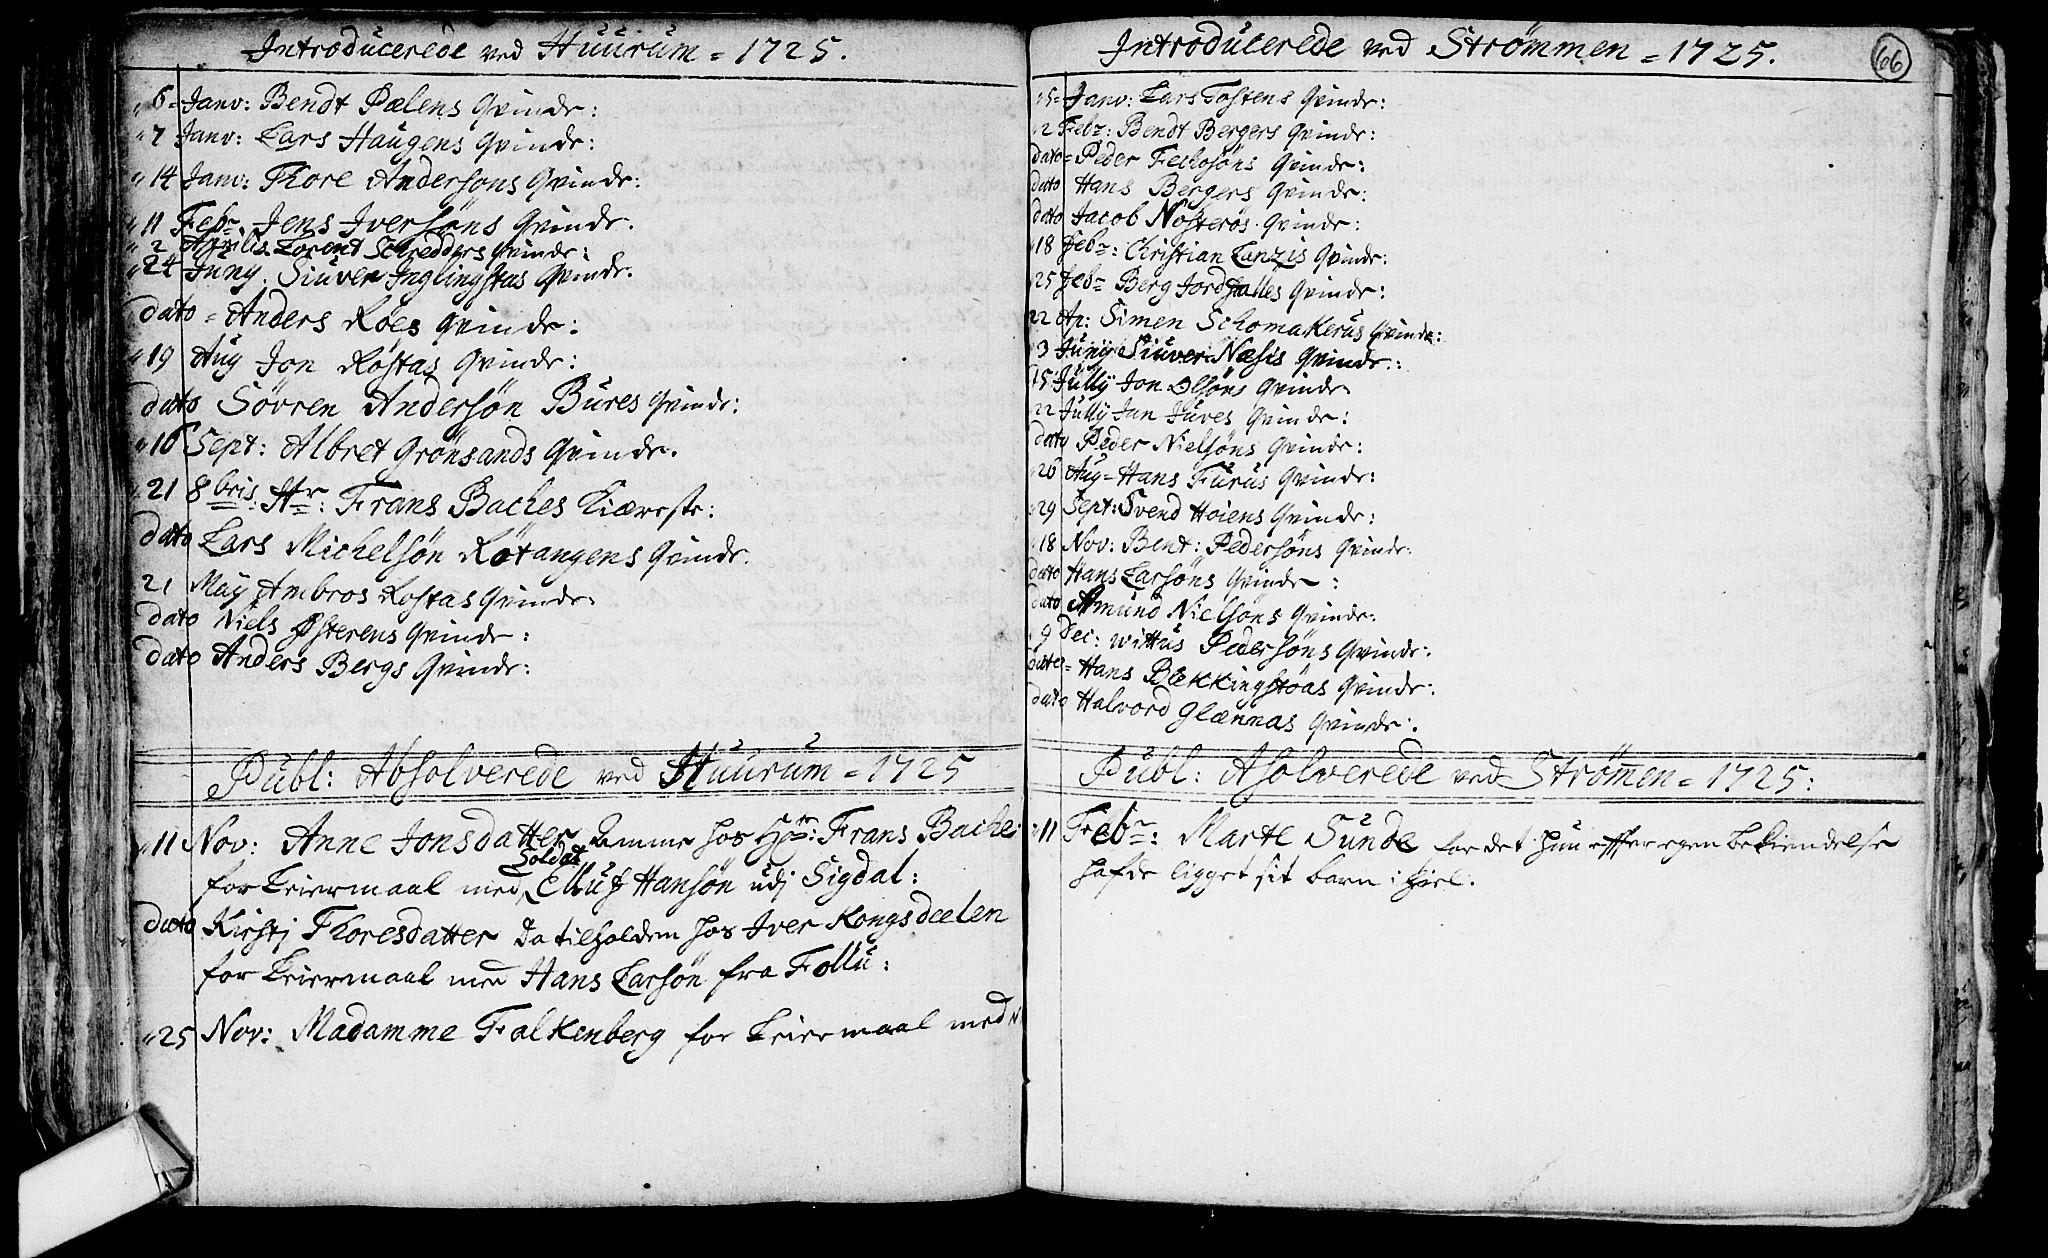 Introducerede ved Huurum = 1725.
6 = Janv: Bendt Dælens Qvinde:
7 Janv: Lars Haugens Qvinde:
14 Janv: Thore Andersons Qvinde:
11 Febr. Jens Iversöns Qvinde.
2 Aprilis Lorent Schredders Qvinde:
24 Juny. Siuver Inglingstas Qvinde.
dato = Anders Roes Qvinde:
19 Aug Jon Rostas Qvinde:
dato Sövren Andersön Bures Qvinde:
16 Sept: Albret Grönsands Qvinde.
21 8bris. Hr: Frans Baches Kiæreste:
dato Lars Michelsön Rötangens Qvinde.
21 May Ambros Rostas Qvinde
dato Niels Østerens Qvinde:
dato Anders Bergs Qvinde:
Publ: Absolverede ved Huurum = 1725
11 Nov: Anne Jonsdatter Amme hos Hr: Frans Bache
Soldat
for Leiermaal med Elluf Hansön udj Sigdal:
dato Kirstj Thoresdatter da tilholden hos Iver Kongsdeelen
for Leiermaal med Hans Larsön fra Follu:
25 Nov: Madamme Falkenberg for Leiermaal med N
Introducerede ved Strömmen = 1725.
66
15 = Janv: Lars Tostens Qvinde:
12 Febr: Bendt Bergers Qvinde:
dato = Peder Qvinde:
dato Hans Bergers Qvinde:
dato Jacob Nosterös Qvinde:
18 Febr: Christian Lanzis Qvinde:
25 Febr Berg Qvinde:
22 Ap: Simen Schomakerus Qvinde:
3 Juny Siuver Næsis Qvinde:
15 Jully Jon Olsöns Qvinde
22 Jully Jan Juves Qvinde:
dato Peder Nielsöns Qvinde:
26 Aug = Hans Furus Qvinde:
29 Sept: Svend Hoiens Qvinde:
18 Nov: Bent: Pedersöns Qvinde:
dato Hans Larsöns Qvinde:
dato Amund Nielsöns Qvinde:
9 Dec: Wittus Pedersöns Qvinde:
dato = Hans Bekkingstöas Qvinde:
dato Halvord Glænnas Qvinde:
Publ: Asolverede ved Strömen = 1725:
11 Febr: Marte Sunde for det hun effter egen bekiendelse
hafde ligget sit barn i hiel: